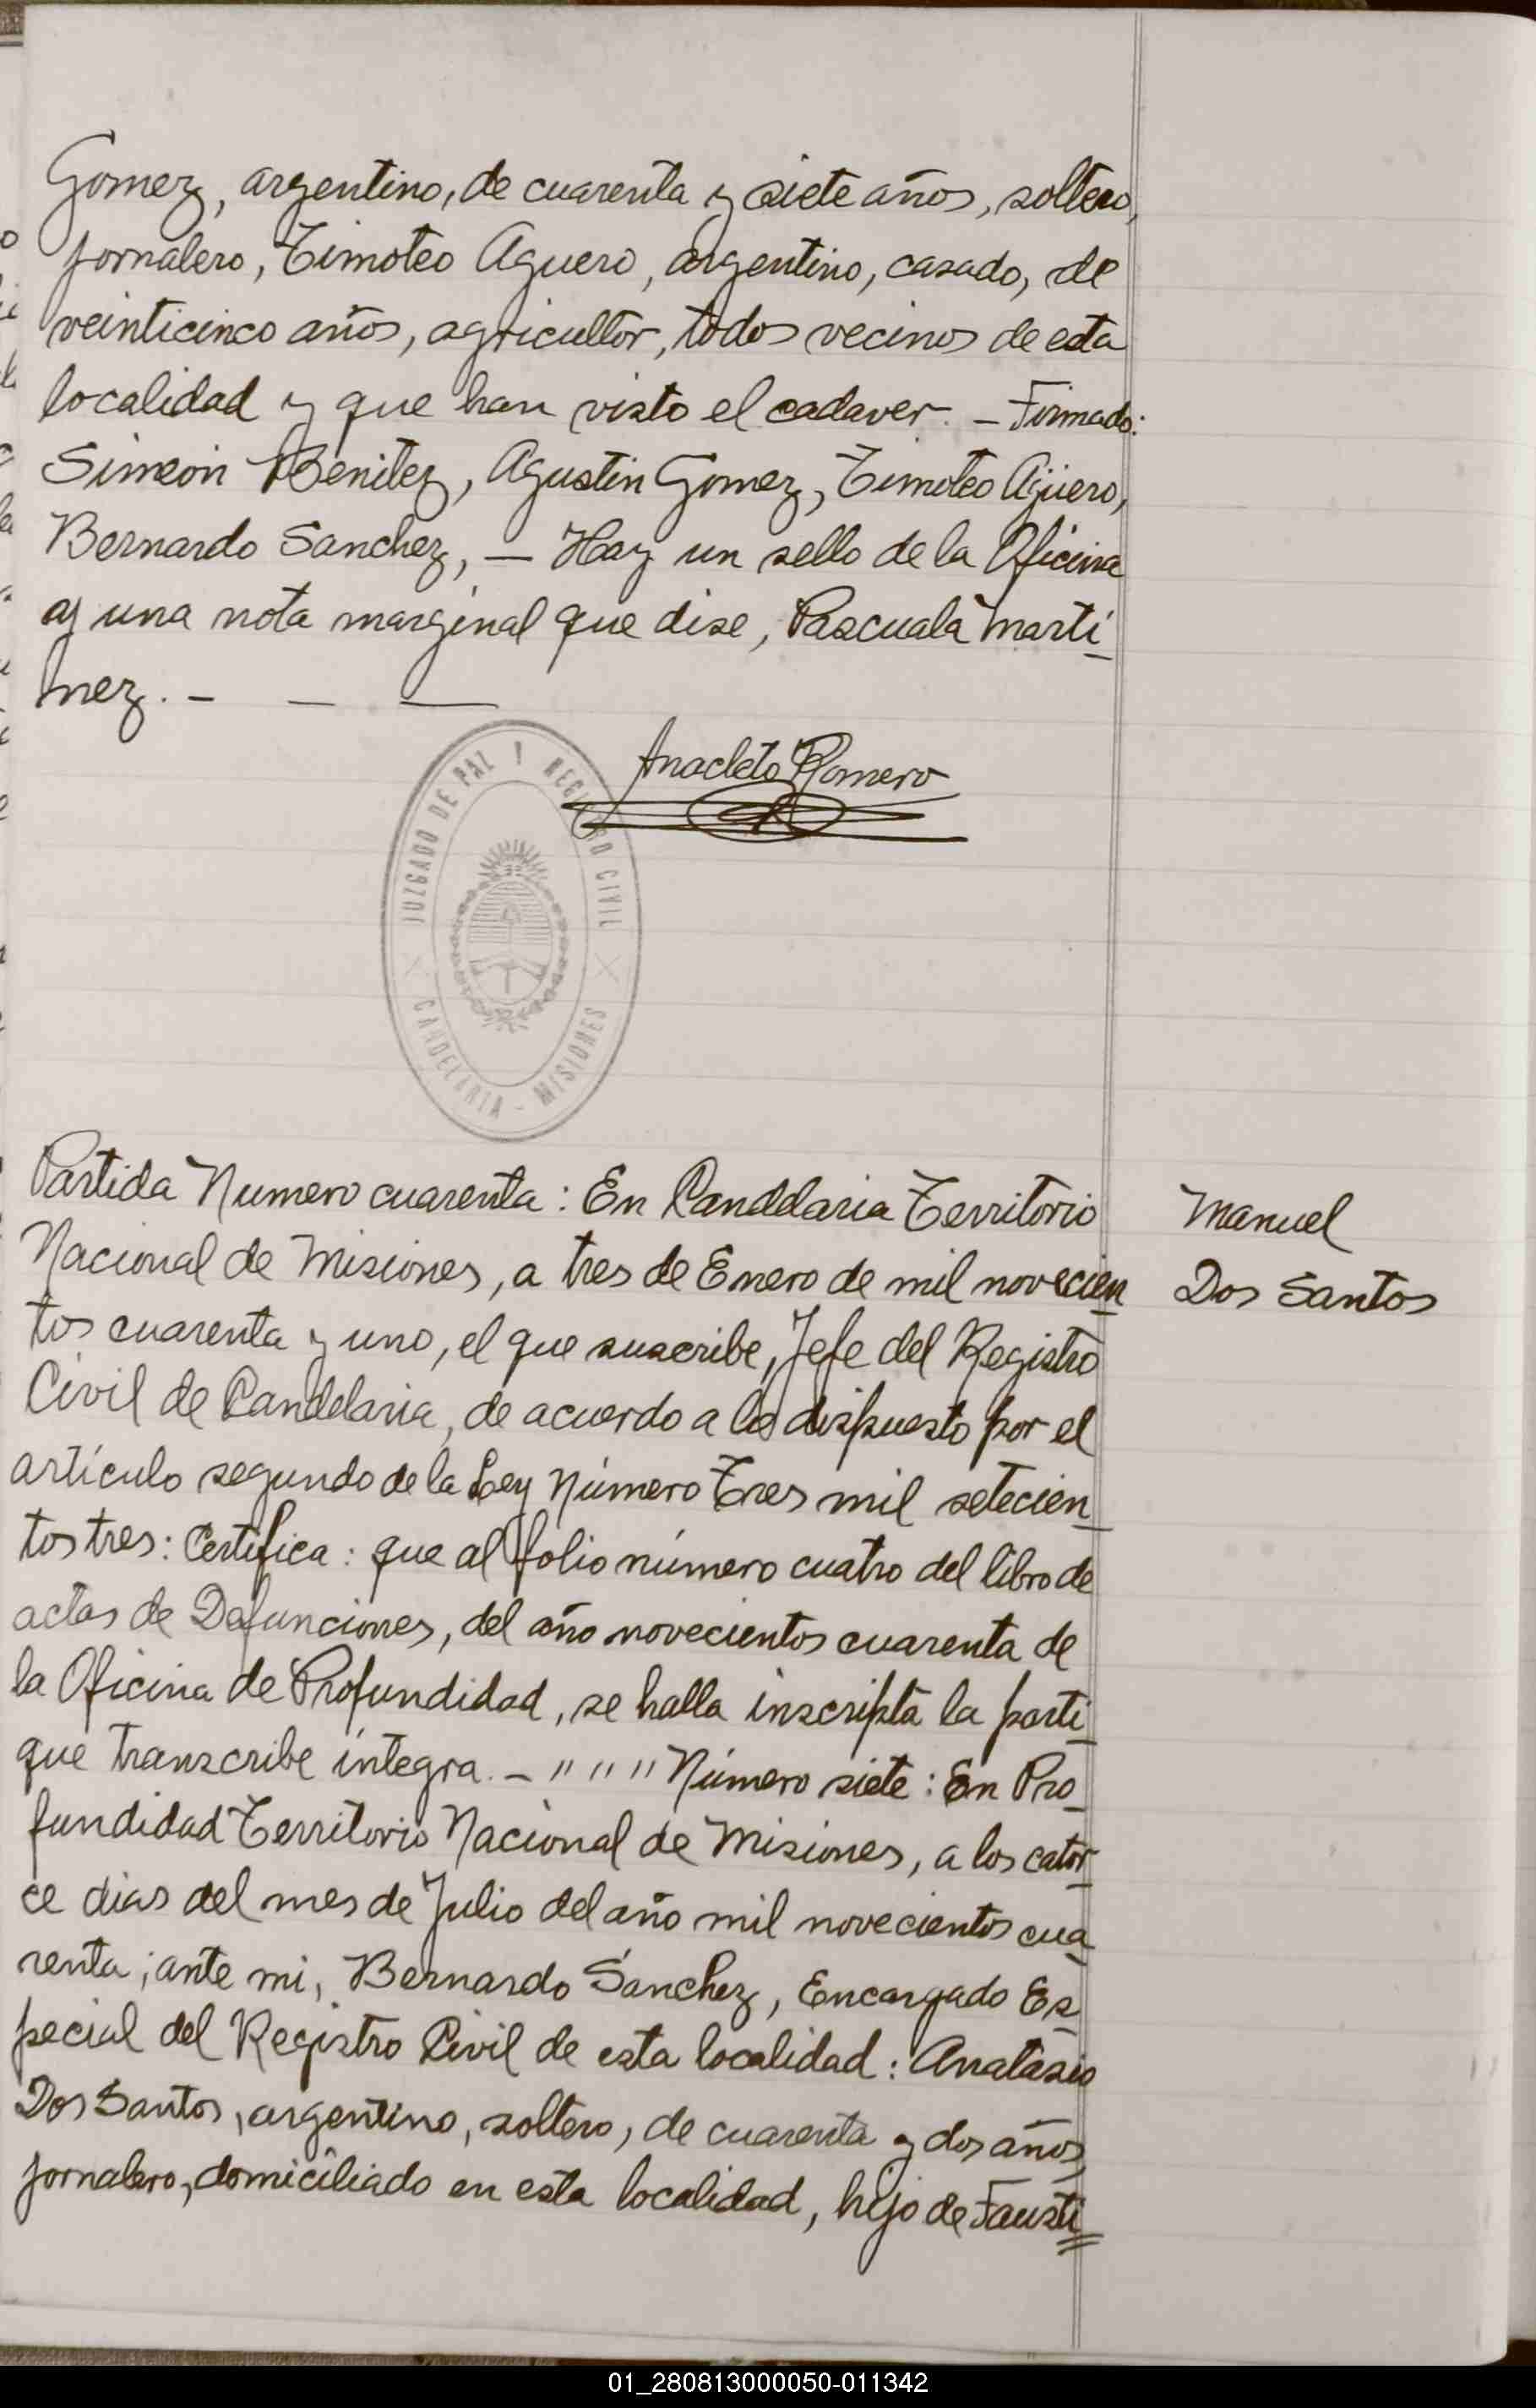 Gomez, argentino, de cuarenta y siete años, soltero,
jornalero, Timoteo Aguero, argentino, casado, de
veinticinco años, agricultor, todos vecinos de esta
localidad y que han visto el cadaver. – Firmado:
Simeón Benitez, Agustin Gomez, Timoteo Agüero,
Bernardo Sanchez, — Hay un sello de la Oficina
y una nota marginal que dise, Pascuala Marti
nez. – — —
Anacleto Romero
JUZGADO DE PAZ Y REGISTRO CIVIL
CANDELARIA - MISIONES
Partida Numero cuarenta: En Candelaria Territorio
Manuel
Nacional de Misiones, a tres de Enero de mil novecien
Dos Santos
tos cuarenta y uno, el que suscribe, Jefe del Registro
Civil de Candelaria, de acuerdo a lo dispuesto por el
artículo segundo de la Ley Número Tres mil setecien
tos tres: Certifica: que al folio número cuatro del libro de
actas de Defunciones, del año novecientos cuarenta de
la Oficina de Profundidad, se halla inscripta la parti
que transcribe íntegra. – " " " Número siete: En Pro
fundidad Territorio Nacional de Misiones, a los cator
ce dias del mes de Julio del año mil novecientos cua
renta; ante mi, Bernardo Sanchez, Encargado Es
pecial del Registro Civil de esta localidad: Anatasio
Dos Santos, argentino, soltero, de cuarenta y dos años,
jornalero, domiciliado en esta localidad, hijo de Fausti
01_280813000050-011342